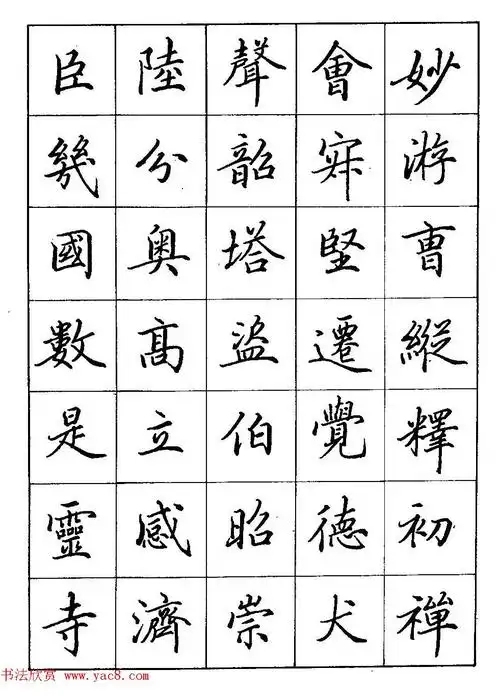 妙游曺縱釋初禪
會堅遷覺德犬
聲韶塔盜伯昭崇
陸分奧高立感濟
臣幾國數是靈寺
书法欣赏 www.yac8.com